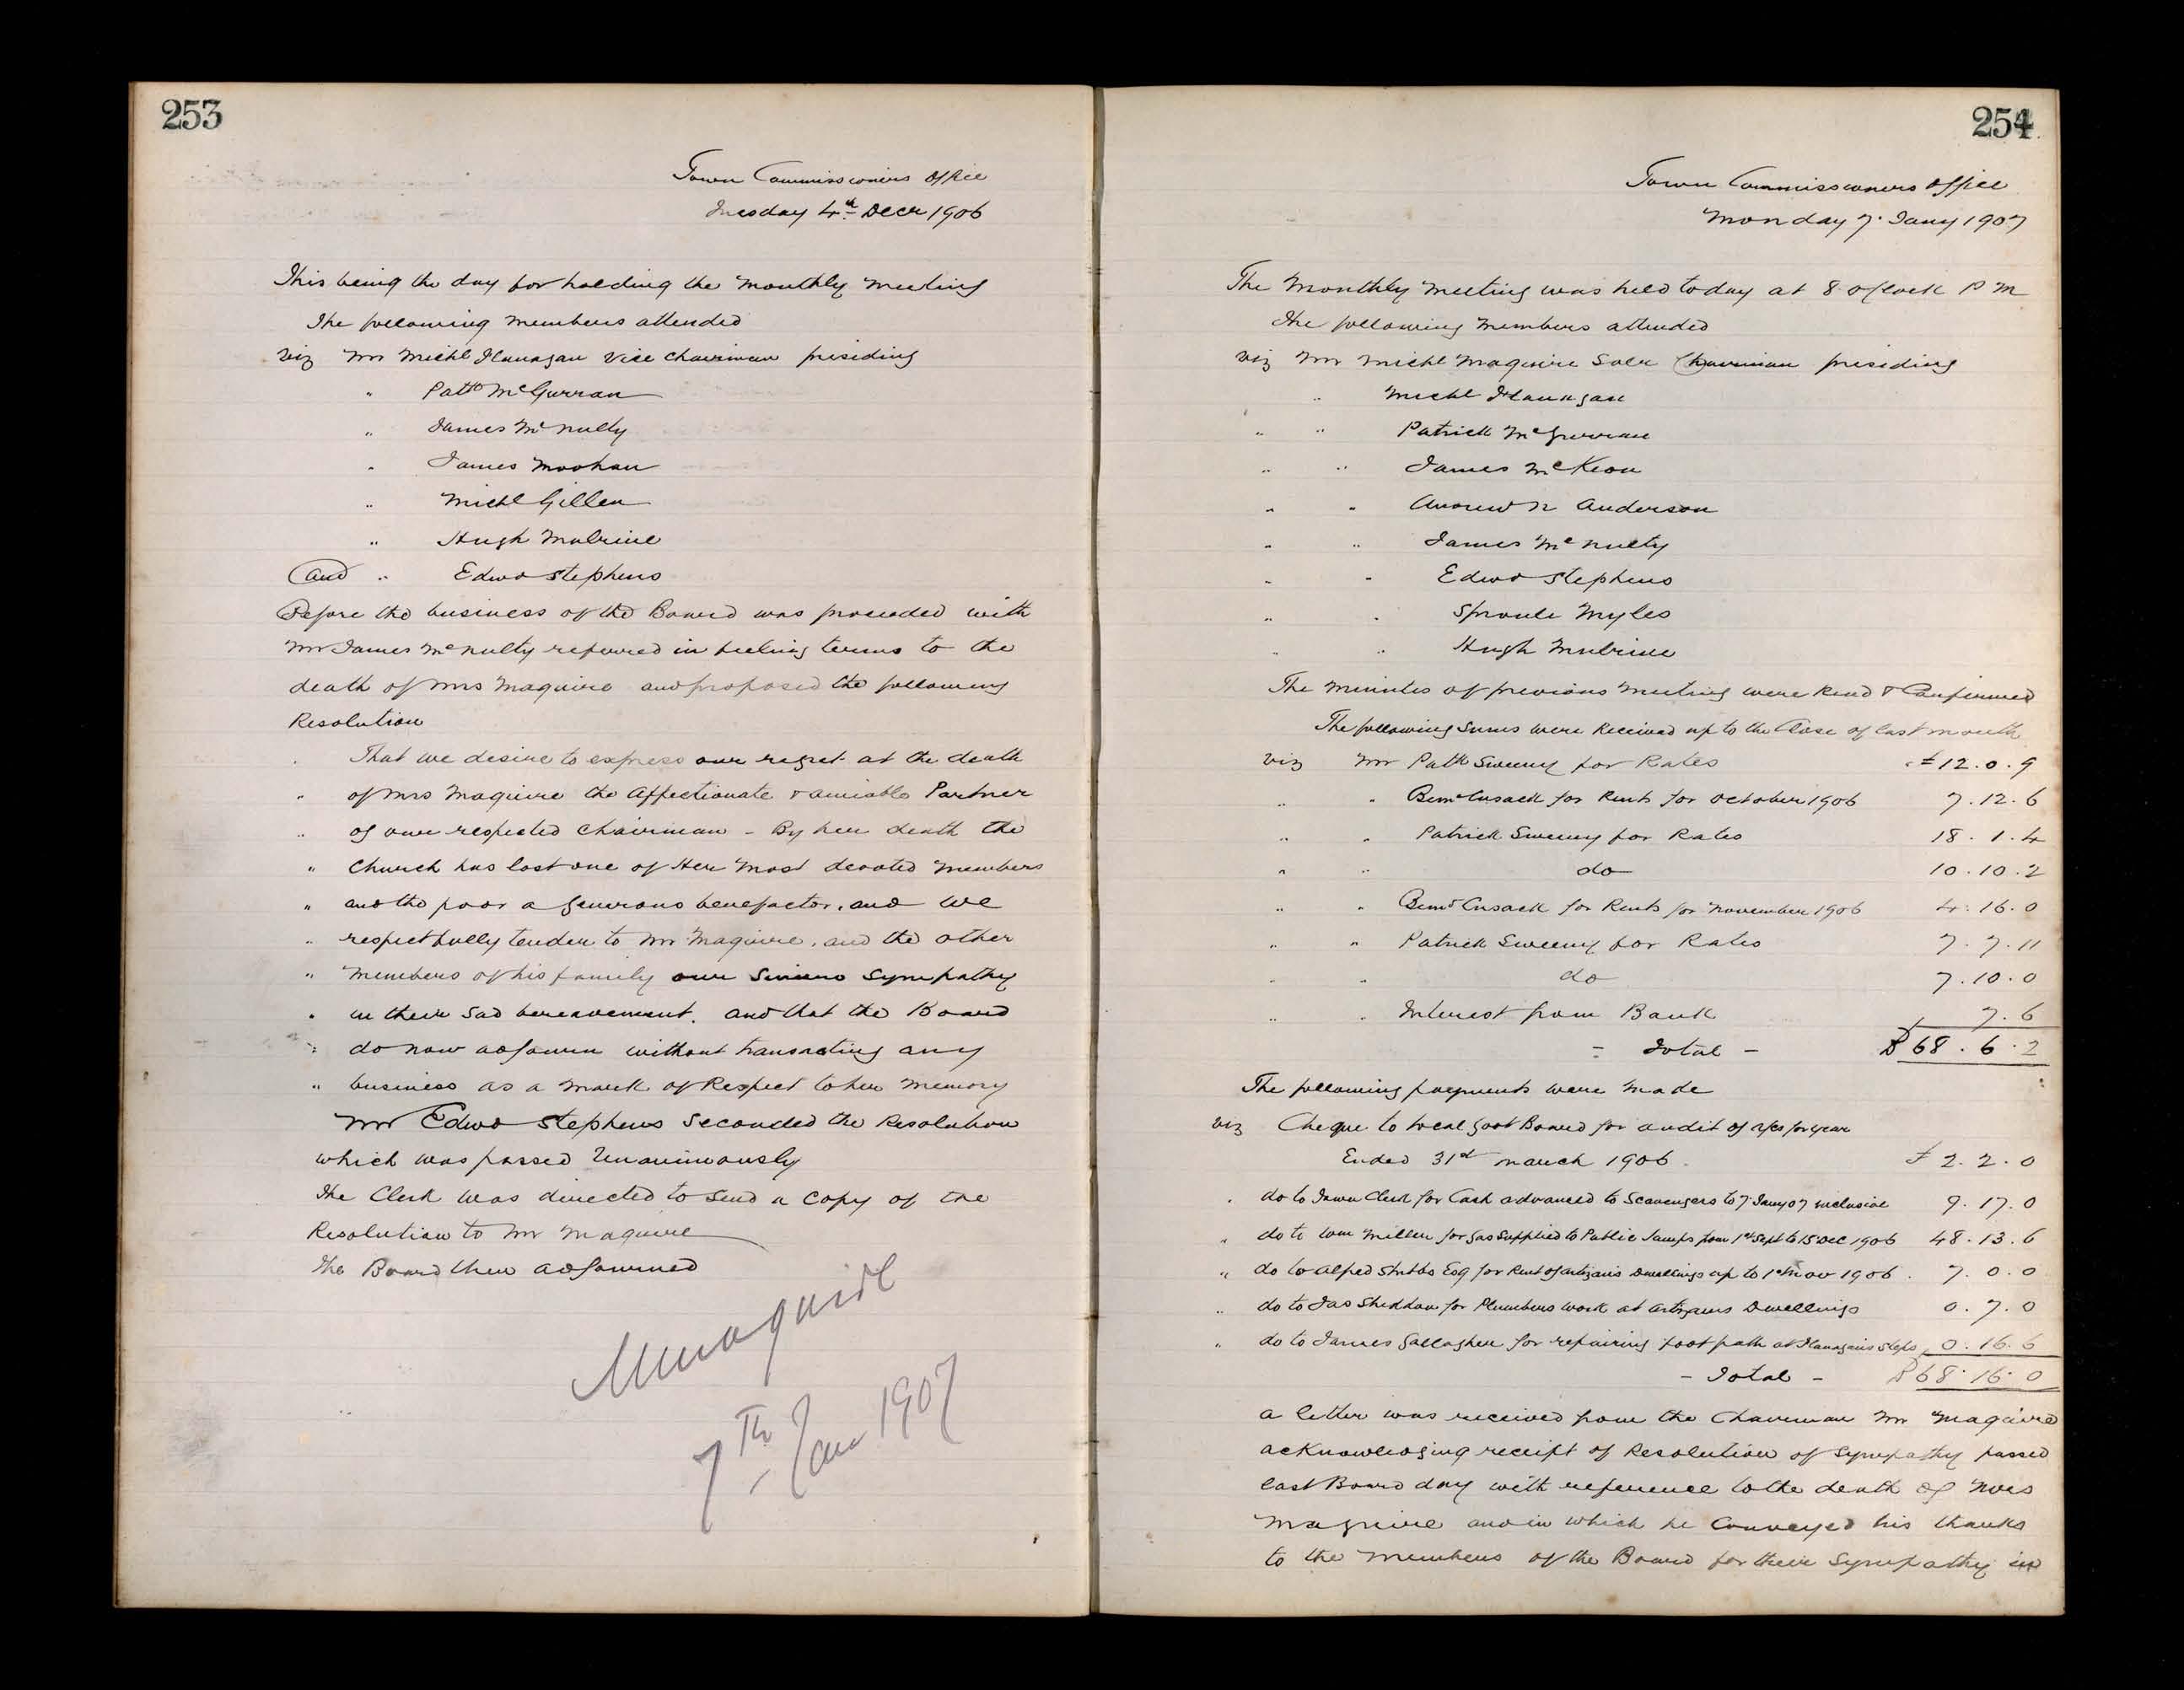 253
Town Commissioners Office
Tuesday 4th Decr 1906
This being the day for holding the Monthly Meeting
The following Members attended
Viz Mr Michl Flanagan Vice Chairman presiding
" Patk McGurran
" James McNulty
" James Moohan
" Michl Gillen
" Hugh Mulrine
and " Edwd Stephens
Before the business of the Board was proceeded with
Mr James McNulty referred in feeling terms to the
death of Mrs Maguire and proposed the following
Resolution
" That we desire to express our regret at the death
" of Mrs Maguire the Affectionate & amiable Partner
" of our respected Chairman - By her death the
" Church has lost one of Her Most devoted Members
" and the poor a generous benefactor, and we
" respectfully tender to Mr Maguire, and the other
" Members of his family our Sincere Sympathy
" in their Sad bereavement. and that the Board
" do now adjourn without transacting any
" business as a Mark of Respect to her Memory
Mr Edwd Stephens Seconded the Resolution
which was passed Unanimously
The Clerk was directed to Send a Copy of the
Resolution to Mr Maguire
The Board then adjourned
MMaguire
7th Jan 1907
254
Town Commissioners Office
Monday 7. Jany 1907
The Monthly Meeting was held today at 8 oClock P M
The following Members attended
viz Mr Michl Maguire Solr Chairman presiding
" Michl Flanagan
" " Patrick McGurran
" " James McKeon
" " Andrew N Anderson
" " James McNulty
" " Edwd Stephens
" " Sproule Myles
" " Hugh Mulrine
The Minutes of previous Meeting were Read & Confirmed
The following Sums were Received up to the Close of last month
viz Mr Patk Sweeny for Rates £12.0.9
" " Bernd Cusack for Rents for October 1906 7.12.6
" " Patrick Sweeny for Rates 18.1.4
" " do 10.10.2
" " Bernd Cusack for Rents for November 1906 4.16.0
" " Patrick Sweeny for Rates 7.7.11
" " do 7.10.0
" " Interest from Bank 7.6
- Total - £68.6.2
The following payments were Made
viz Cheque to Local Govt Board for audit of a/cs for year
Ended 31st March 1906. £2.2.0
" do to Town Clerk for Cash advanced to Scavengers to 7 Jany 07 inclusive 9.17.0
" do to Wm Miller for Gas Supplied to Public Lamps from 1st Sept to 15 Dec 1906 48.13.6
" do to Alfred Stubbs Esq for Rent of Artizans Dwellings up to 1st Nov 1906. 7.0.0
" do to Jas Sheddan for Plumbers Work at Artizans Dwellings 0.7.0
" do to James Gallagher for repairing foot path at Flanagans Steps 0.16.6
- Total - £68.16.0
A letter was received from the Chairman Mr Maguire
acknowledging receipt of Resolution of Sympathy passed
last Board day with reference to the death of Mrs
Maguire and in which he Conveyed his thanks
to the Members of the Board for their Sympathy in